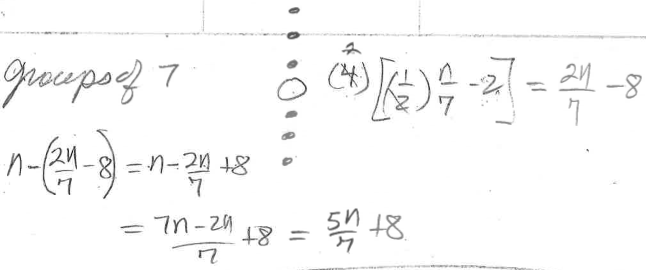 groups of 7 (4)² [(1/2) n/7 - 2] = 2n/7 - 8
n - (2n/7 - 8) = n - 2n/7 + 8
= (7n - 2n)/7 + 8 = 5n/7 + 8